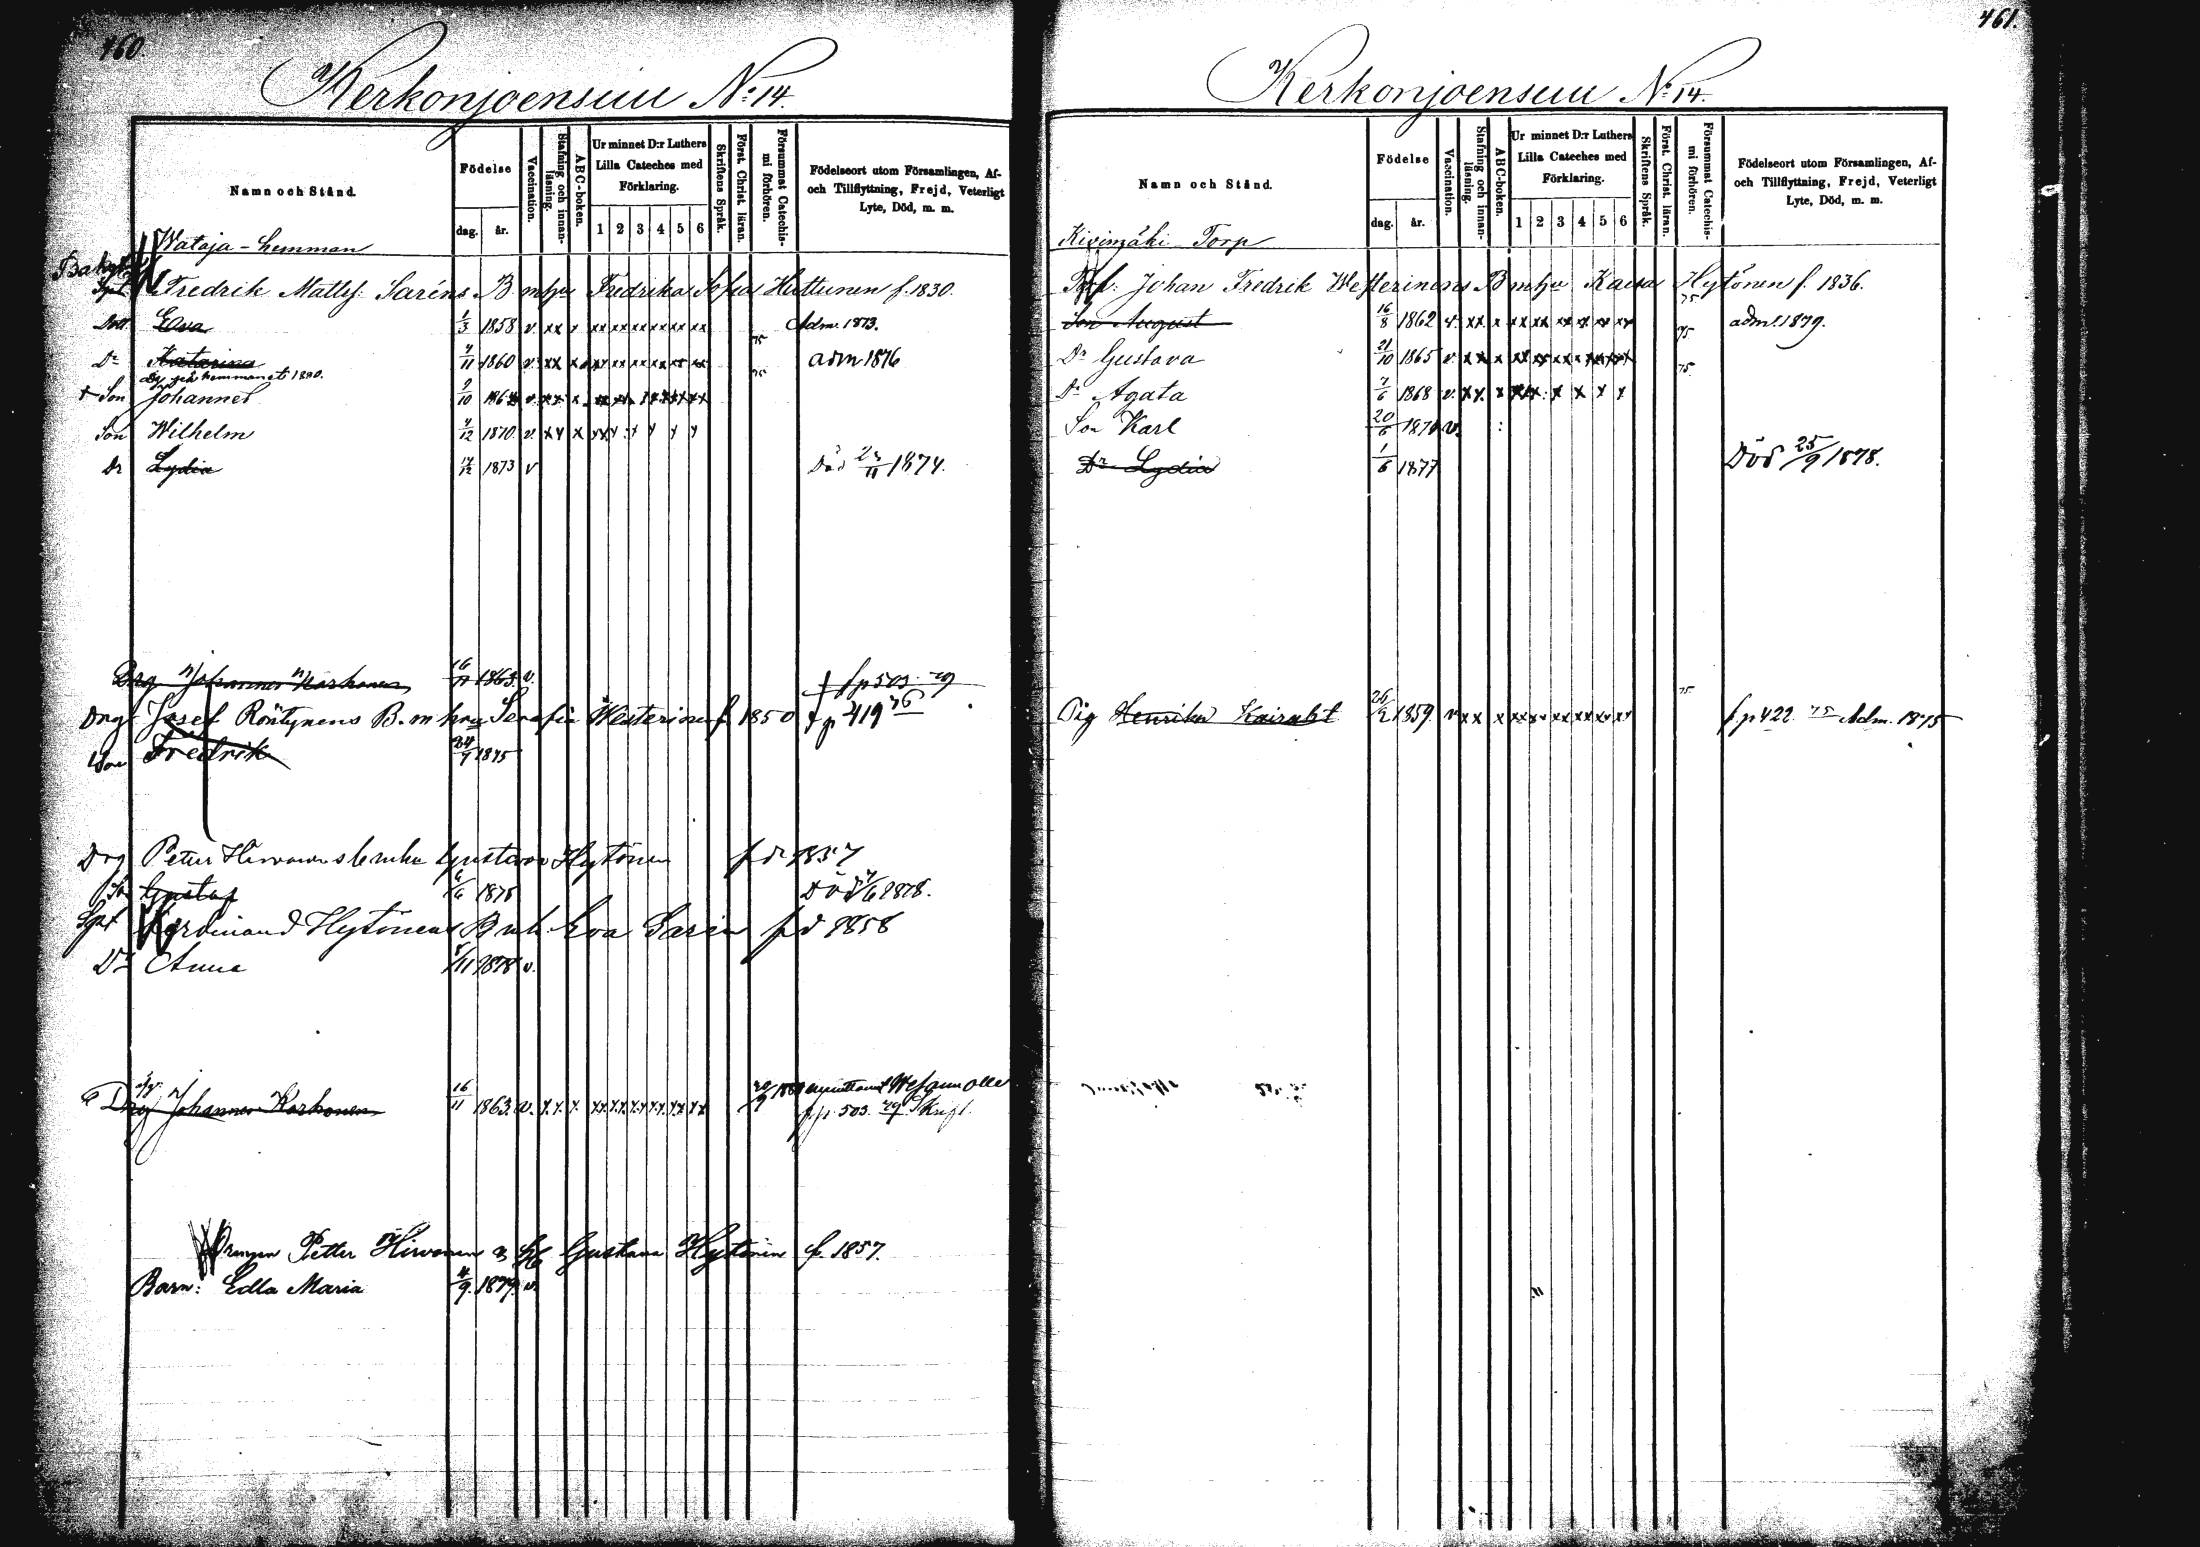 460.
Kerkonjoensuu No: 14.
Namn och Stånd.
Födelse
dag. år.
Vaccination.
Stafning och innanläsning.
ABC-boken.
Ur minnet D:r Luthers Lilla Cateches med Förklaring.
1 2 3 4 5 6
Skriftens Språk.
Först. Christ. läran.
Försummat Catechismi förhören.
Födelseort utom Församlingen, Af- och Tillflyttning, Frejd, Veterligt Lyte, Död, m. m.
Wataja - hemman
Fredrik Matts: Saréns B mhu Fredrika Sofia Huttunen f. 1830.
Dott. Eva 1/3 1858 v. xx x xx xx xx xx xx xx Adm. 1873.
Dr Katarina 7/11 1860 v. xx x xx xx xx xx xx xx 75 adm 1876
på hemmanet 1880.
+ Son Johannes 9/10 1864 v. xx x
Son Wilhelm 7/12 1870. v. xx x
Dr Lydia 14/12 1873 v Död 23/11 1874.
Drg Johannes Korhonen 16/11 1863. v. f p 503 79
Drg Josef Röntynens B. m hru Serafia Westerinen f 1850 f p 419 76
Son Fredrik 24/7 1875
Drg Petter Hirvonens b mhu Gustava Hytönen f d 1857
Son Gustaf 6/6 1878 Död 7/6 1878.
Ferdinand Hytönens B mh. Eva Saren f d 1858
Dr Anna 5/11 1878 v.
Drg Johannes Korhonen 16/11 1863. v. x.x. x. xx xx xx xx xx xx f.p. 503. 79
Drengen Petter Hirvonen Gustava Hytönen f. 1857.
Barn: Edla Maria 4/9. 1879. v.
461.
Kerkonjoensuu No: 14.
Namn och Stånd.
Födelse
dag. år.
Vaccination.
Stafning och innanläsning.
ABC-boken.
Ur minnet D:r Luthers Lilla Cateches med Förklaring.
1 2 3 4 5 6
Skriftens Språk.
Först. Christ. läran.
Försummat Catechismi förhören.
Födelseort utom Församlingen, Af- och Tillflyttning, Frejd, Veterligt Lyte, Död, m. m.
Kivimäki Torp
Johan Fredrik Westerinens B mhu Kaisa Hytönen f. 1836.
Son August 16/8 1862 v. xx. x xx xx xx xx xx xx 75 adm. 1879.
Dr Gustava 21/10 1865 v. xx x 75
Dr Agata 7/6 1868 v. xx. x 75
Son Karl 20/6 1871 v.
Dr Lydia 1/6 1877 Död 25/9 1878.
Pig Henrika Kairulst 26/2 1859. v xx x xx xx xx xx xx xx 75 f. p 422. 75 Adm. 1875